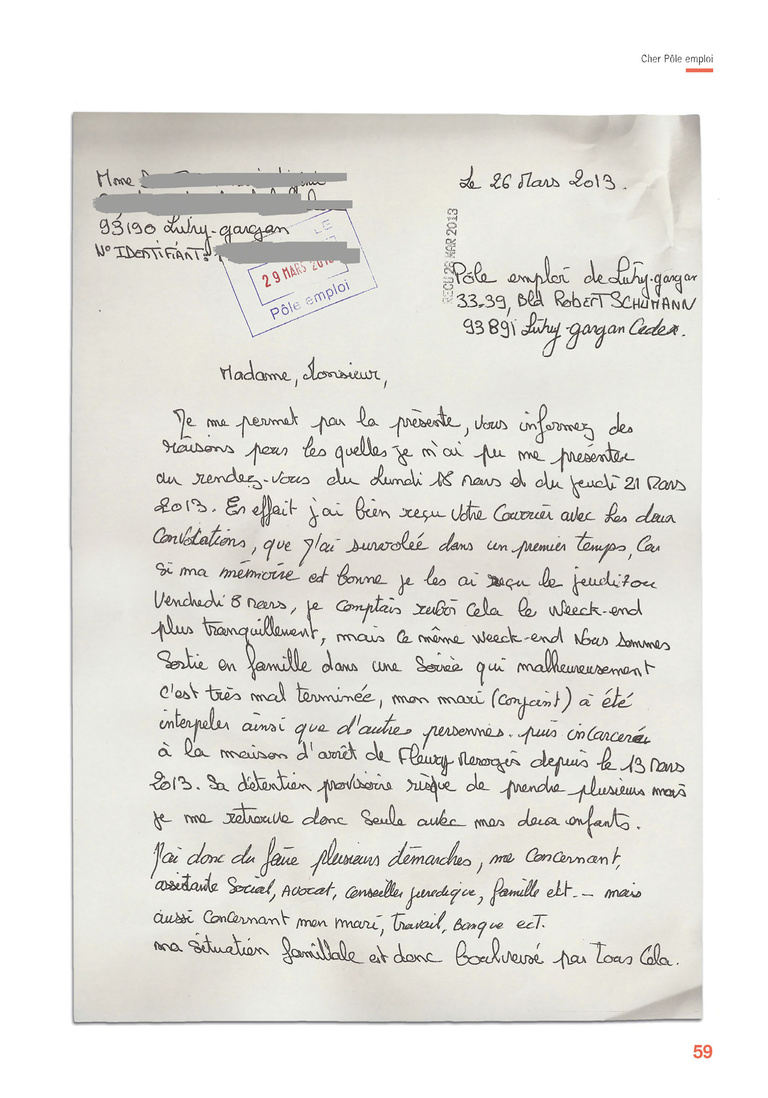 Cher Pôle emploi
Mme
Le 26 Mars 2013.
93190 Livry-gargan
N° IDENTIFIANT:
29 MARS
Pôle emploi
RECU 28 MAR 2013
Pôle emploi de Livry-gargan
33-39, Bld ROBERT SCHUMANN
93891 Livry-gargan Cedex.
Madame, Monsieur,
Je me permet par la présente, vous informez des
raisons pour les quelles je m'ai pu me présenter
au rendez-vous du Lundi 18 Mars et du jeudi 21 Mars
2013. En effait j'ai bien reçu votre Courrier avec les deux
Convocations, que j'ai survolée dans un premier temps, Car
si ma mémoire est bonne je les ai reçu le jeudi 7 ou
Vendredi 8 Mars, je comptais revoir cela le weeck-end
plus tranquillement, mais ce même weeck-end Nous sommes
Sortie en famille dans une Soirée qui malheureusement
c'est très mal terminée, mon mari (conjoint) à été
interpeler ainsi que d'autres personnes. puis incarcerée
à la maison d'arrêt de Fleury Merogis depuis le 13 Mars
2013. Sa détention provisoire risque de prendre plusieurs mois
je me retrouve donc Seule avec mes deux enfants.
J'ai donc du faire plusieurs démarches, me Concernant,
assistante Social, Avocat, conseiller juredique, famille ebt. - mais
aussi Concernant mon mari, travail, Banque ect.
ma Situation familiale est donc boulversé par Tous Cela.
59